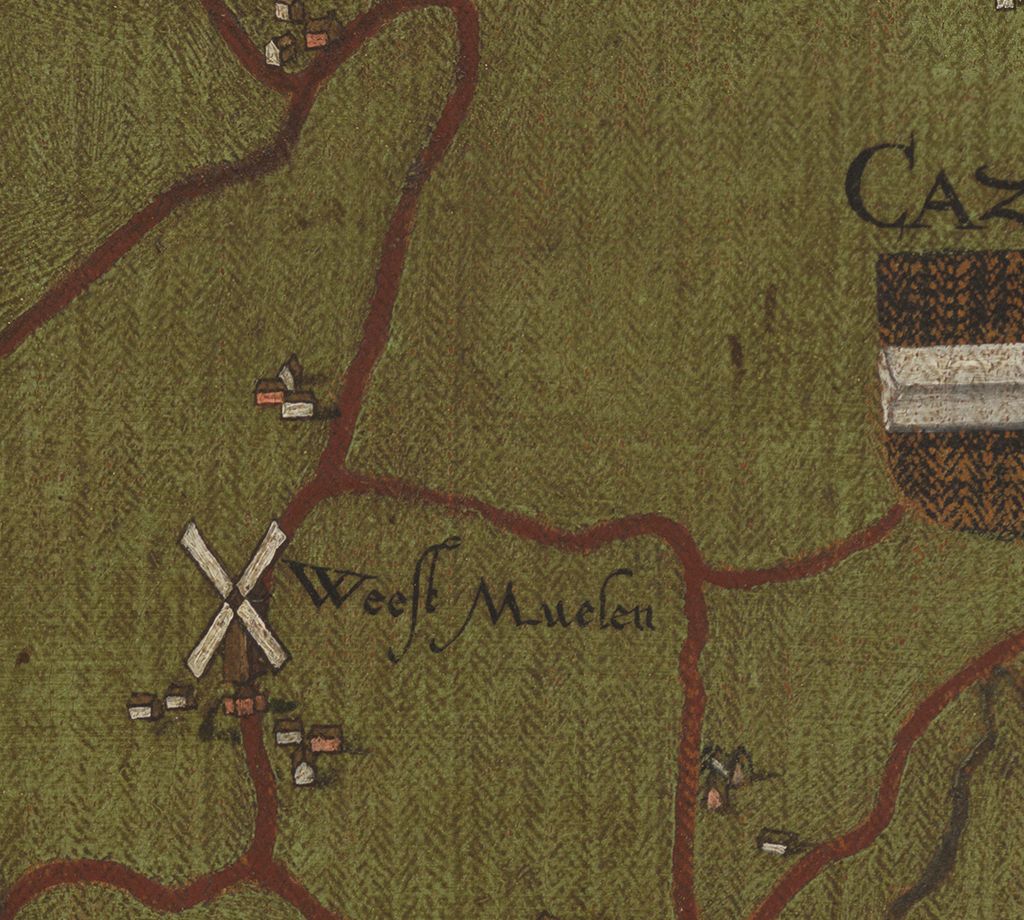 CAZ
Weeſt Muelen